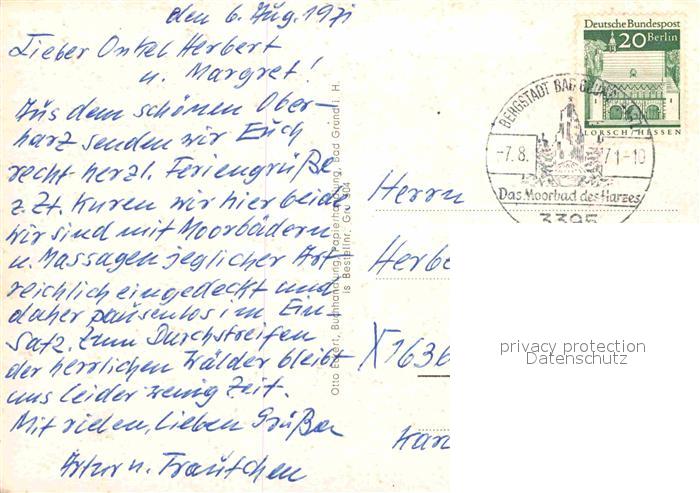 den 6. Aug. 1971
Lieber Onkel Herbert
u. Margret!
Aus dem schönen Ober-
harz senden wir Euch
recht herzl. Feriengrüße
z. Zt. Kuren wir hier beide
wir sind mit Moorbädern
u. Massagen jeglicher Art
reichlich eingedeckt und
daher pausenlos im Ein-
satz. Zum Durchstreifen
der herrlichen Wälder bleibt
uns leider wenig Zeit.
Mit vielen, lieben Grüßen
Artur u. Trautchen
Otto Eckert, Buchhandlung, Papierhandlung, Bad Grund i. H.
Bestellnr. Gru 404
Deutsche Bundespost
20 Berlin
LORSCH/HESSEN
BERGSTADT BAD GRUND
-7.8. 71-10
Das Moorbad des Harzes
3395
Herrn
Herbe
X 1636
privacy protection
Datenschutz